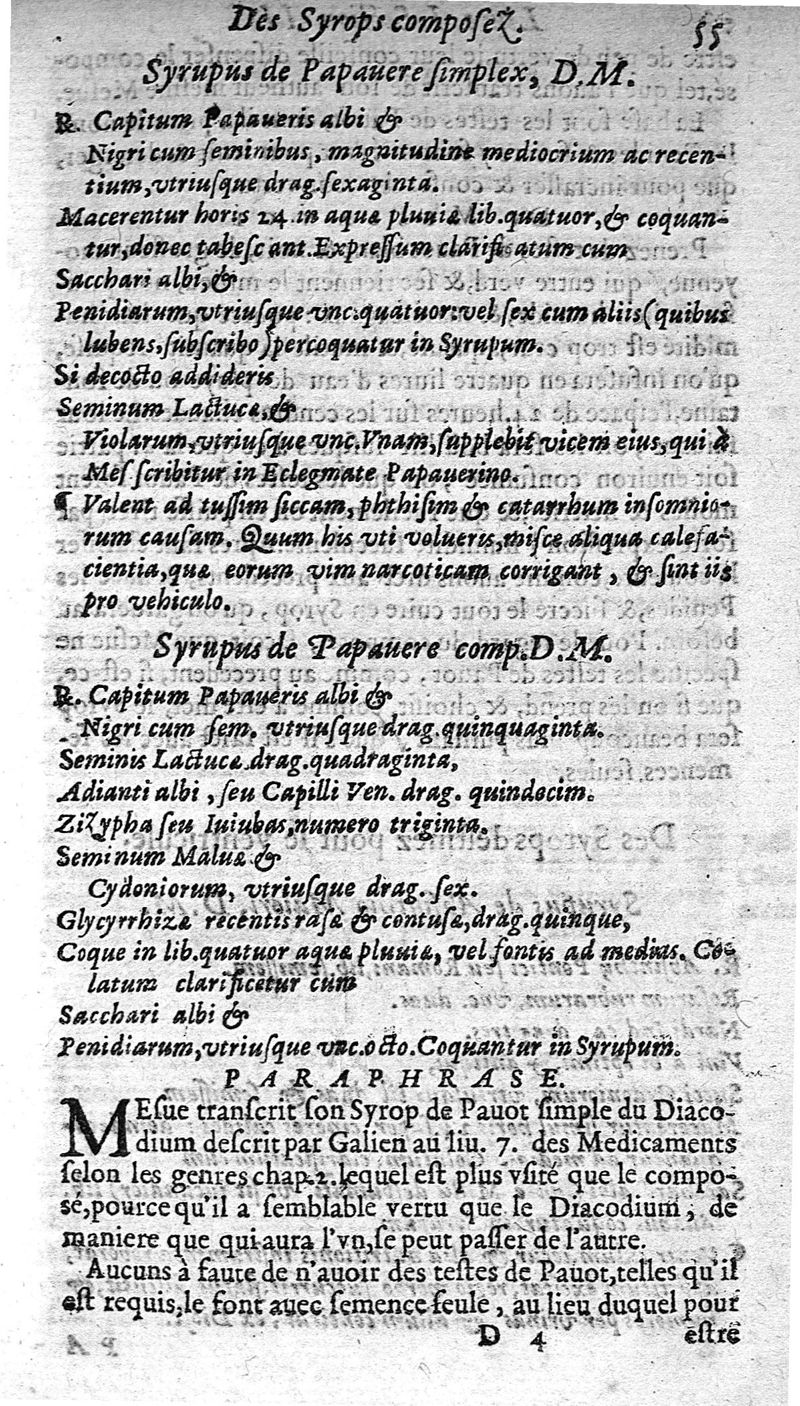 Des Syrops composeZ. 55
Syrupus de Papauere simplex, D.M.
℞. Capitum Papaueris albi &
Nigri cum seminibus, magnitudine mediocrium ac recen-
tium, vtriusque drag. sexaginta.
Macerentur horis 24 in aquæ pluuiæ lib. quatuor, & coquan-
tur, donec tabescant. Expressum clarificatum cum
Sacchari albi, &
Penidiarum, vtriusque vnc. quatuor: vel sex cum aliis (quibus
lubens, subscribo) percoquatur in Syrupum.
Si decocto addideris
Seminum Lactucæ, &
Violarum, vtriusque vnc. Vnam, supplebit vicem eius, qui à
Mes scribitur in Eclegmate Papauerino.
¶ Valent ad tussim siccam, phthisim & catarrhum insomnio-
rum causam. Quum his vti volueris, misce aliqua calefa-
cientia, quæ eorum vim narcoticam corrigant, & sint iis
pro vehiculo.
Syrupus de Papauere comp. D.M.
℞. Capitum Papaueris albi &
Nigri cum sem. vtriusque drag. quinquaginta.
Seminis Lactucæ drag. quadraginta,
Adianti albi, seu Capilli Ven. drag. quindecim.
ZiZypha seu Iuiubas, numero triginta.
Seminum Maluæ &
Cydoniorum, vtriusque drag. sex.
Glycyrrhizæ recentis rasæ & contusæ, drag. quinque,
Coque in lib. quatuor aquæ pluuiæ, vel fontis ad medias. Co-
latum clarificetur cum
Sacchari albi &
Penidiarum, vtriusque vnc. octo. Coquantur in Syrupum.
PARAPHRASE.
MEsue transcrit son Syrop de Pauot simple du Diaco-
dium descrit par Galien au liu. 7. des Medicaments
selon les genres chap. 2. lequel est plus vsité que le compo-
sé, pource qu'il a semblable vertu que le Diacodium, de
maniere que qui aura l'vn, se peut passer de l'autre.
Aucuns à faute de n'auoir des testes de Pauot, telles qu'il
est requis, le font auec semence seule, au lieu duquel pour
D 4 estre